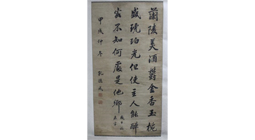 蘭陵美酒鬱金香玉椀
盛琥珀光但使主人能醉
客不知何處是他鄉